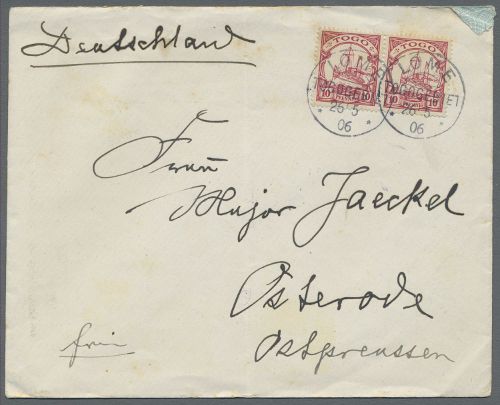 Deutschland
TOGO TOGO
10 10 10
LOME LOME
(TOGOGEBIET) (TOGOGEBIET)
25 5 26 5
* 06 * * 06 *
Frau
Major Jaeckel
Osterode
frei
Ostpreussen